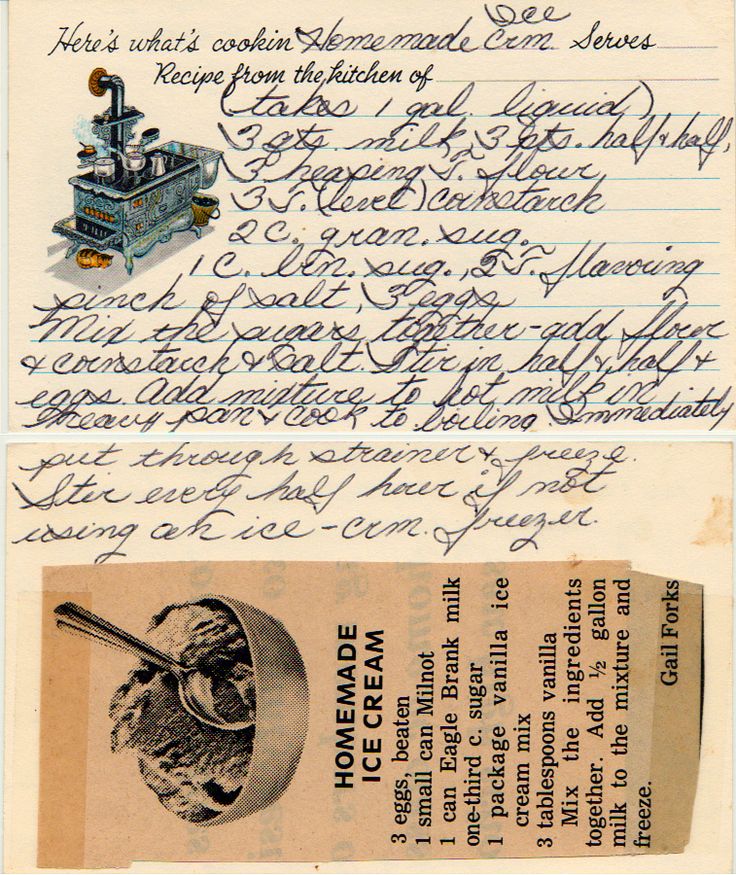 Ice
Here's what's cookin Homemade Crm. Serves
Recipe from the kitchen of
(takes 1 gal. liquid)
3 qts. milk, 3 pts. half & half,
3 heaping T. flour
3 T. (level) cornstarch
2 C. gran. sug.
1 C. brn. sug., 2 T. flavoring
pinch of salt, 3 eggs
Mix the sugars together - add flour
& cornstarch & salt. Stir in half & half &
eggs. Add mixture to hot milk in
heavy pan & cook to boiling. Immediately
put through strainer & freeze.
Stir every half hour if not
using an ice-crm. freezer.
HOMEMADE
ICE CREAM
3 eggs, beaten
1 small can Milnot
1 can Eagle Brank milk
one-third c. sugar
1 package vanilla ice
cream mix
3 tablespoons vanilla
Mix the ingredients
together. Add ½ gallon
milk to the mixture and
freeze.
Gail Forks